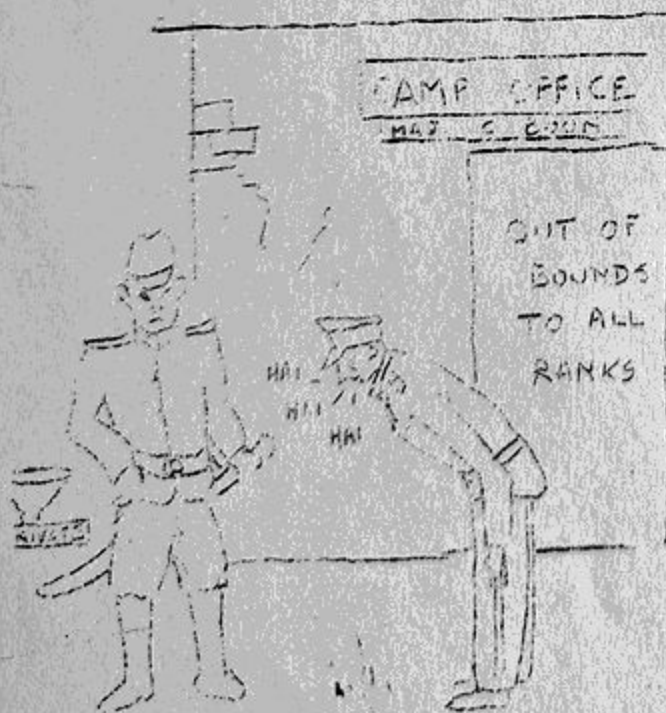 CAMP OFFICE
MAJ C BOON
OUT OF
BOUNDS
TO ALL
RANKS
HAI
HAI
HAI